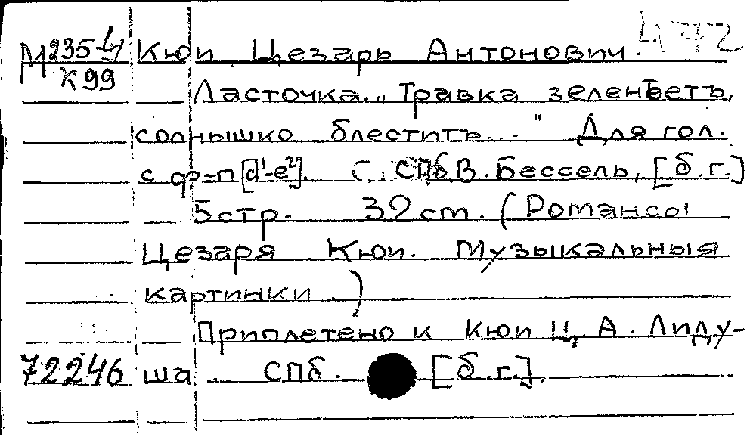 М 235-4 Кюи Цезарь Антонович.
К 99
Ласточка „Травка зеленѣетъ,
солнышко блеститъ..." Для гол.
с ф=п [d'-e²]. СПб В. Бессель, [б.г.]
5 стр. 32 см. (Романсы
Цезаря Кюи. Музыкальныя
картинки )
Приплетено к Кюи Ц. А. Лиду-
72246 ша СПб. [б.г.].